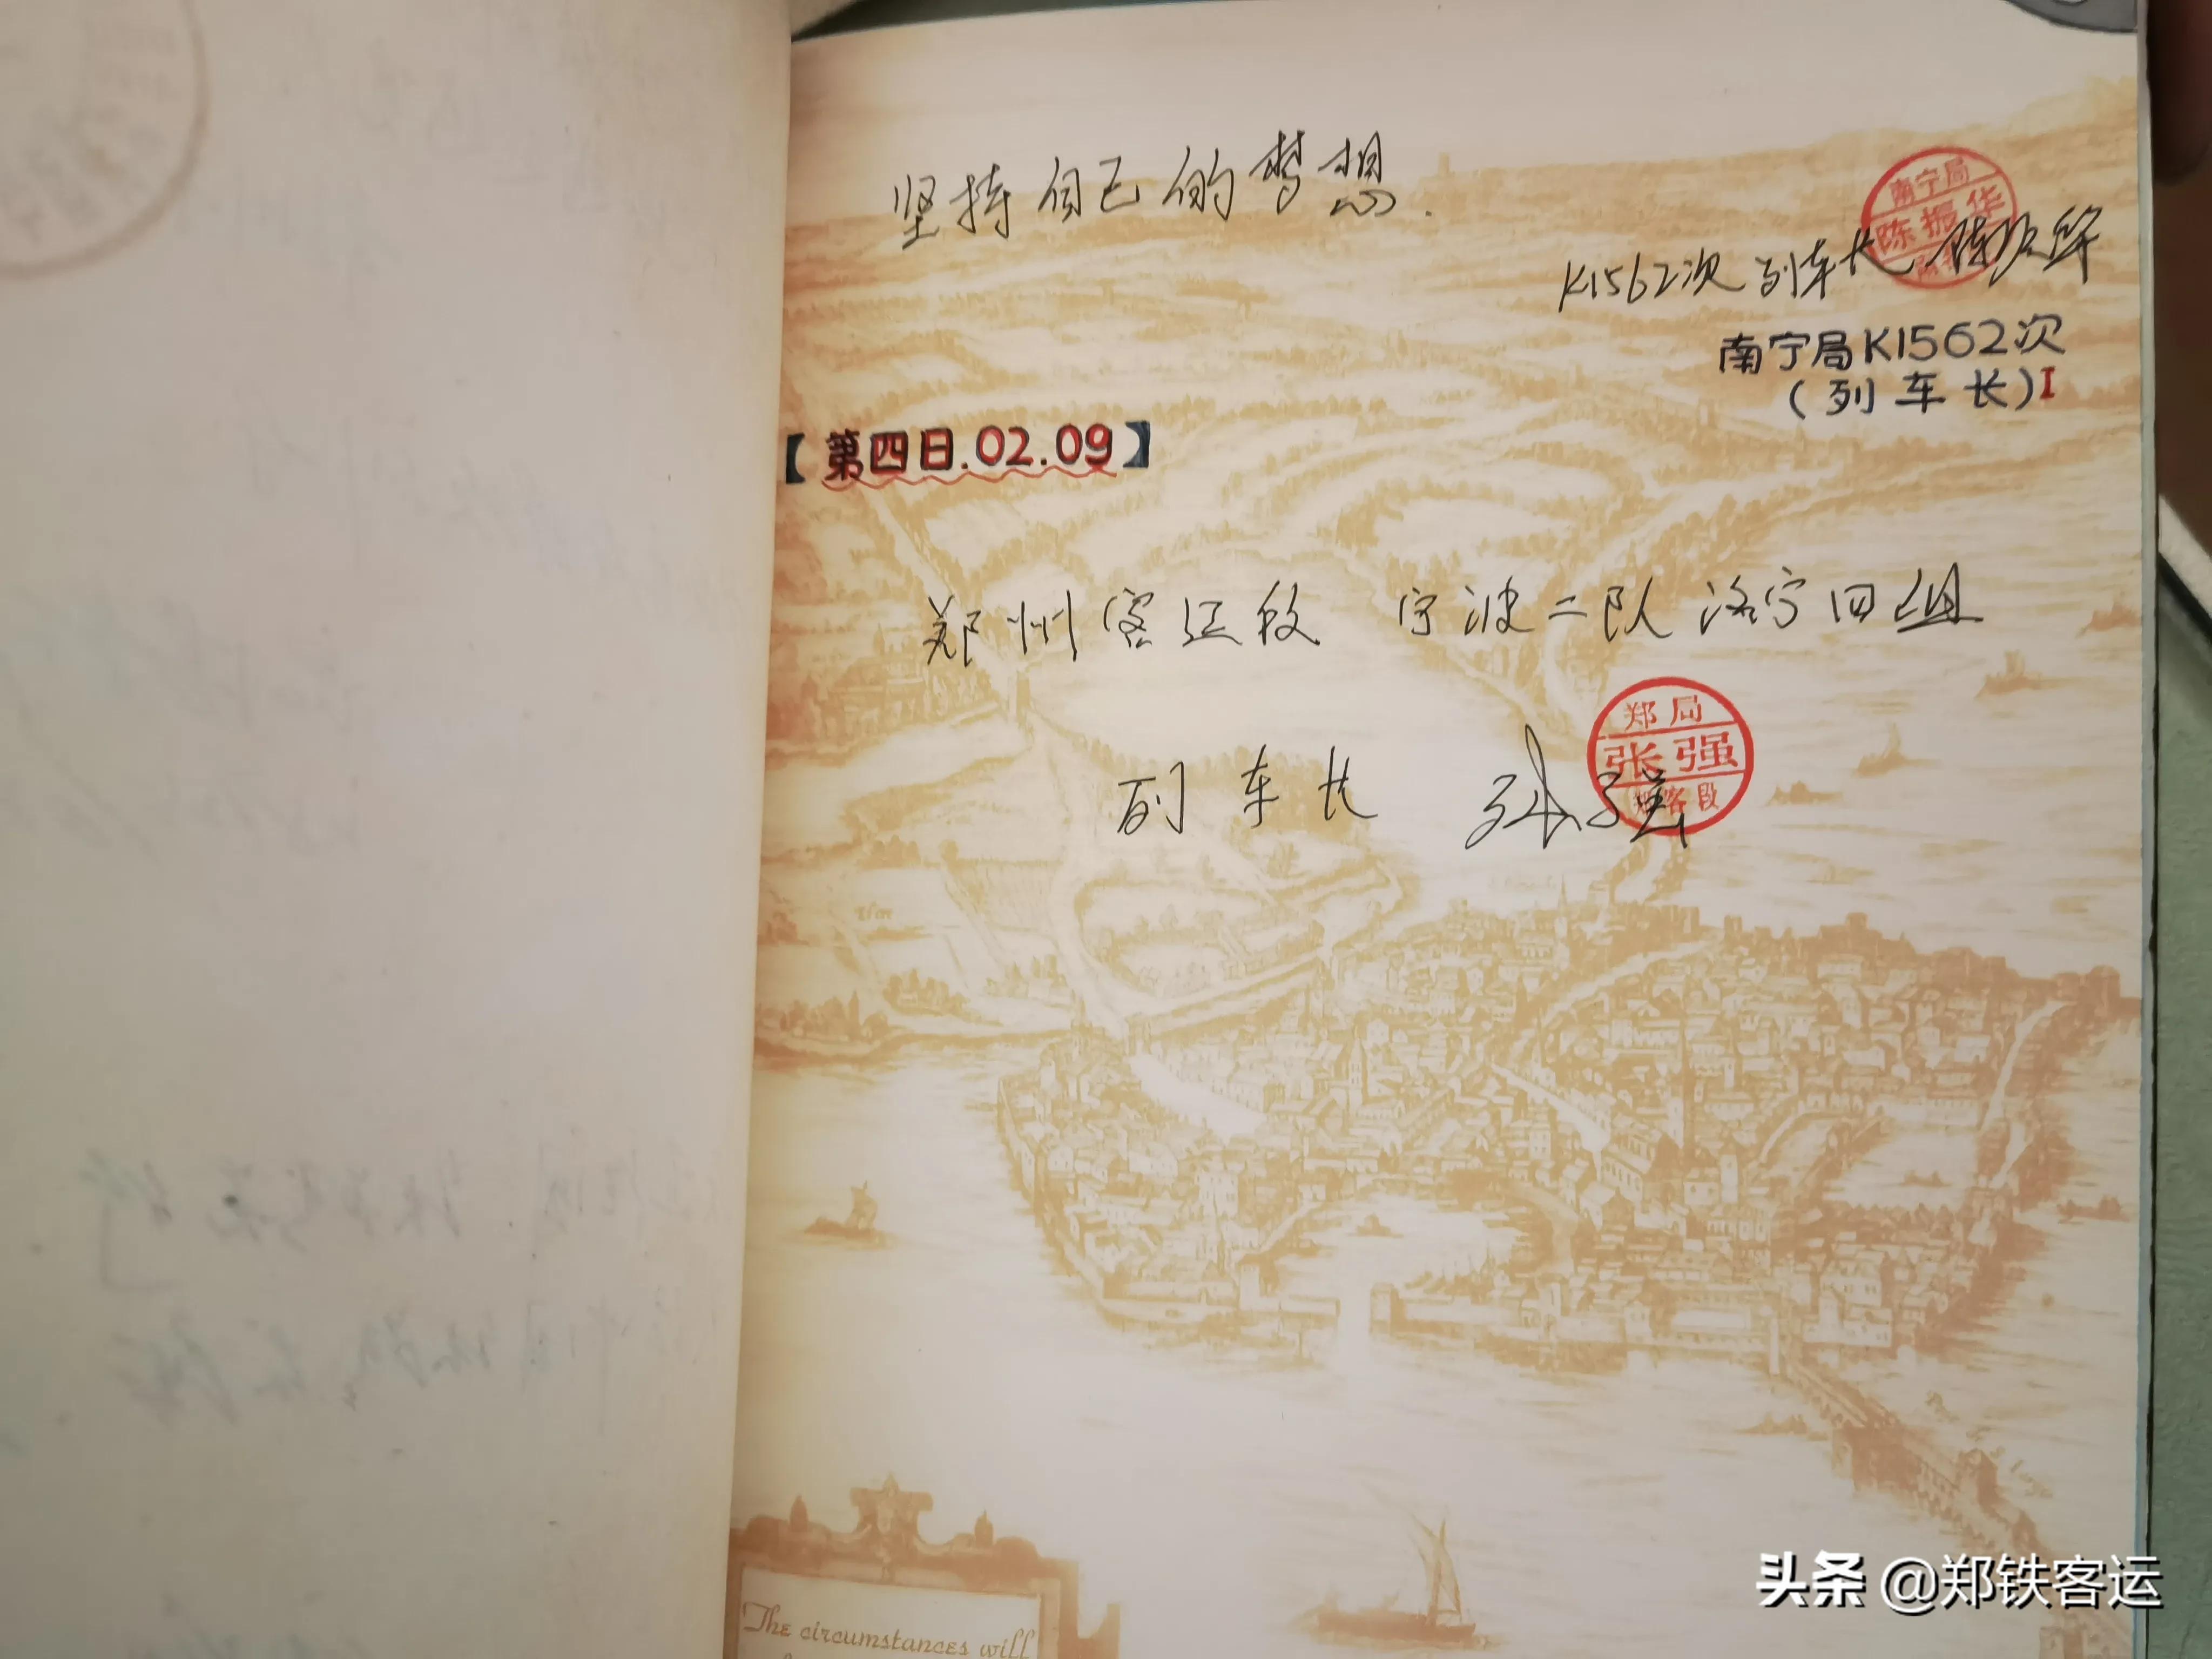 坚持自己的梦想.
南宁局
陈振华
K1562次列车长 陈振华
南宁局K1562次
(列车长)I
【第四日.02.09】
郑州客运段 宁波二队洛宁四组
郑局
张强
郑客段
列车长 张强
The circumstances will
头条 @郑铁客运